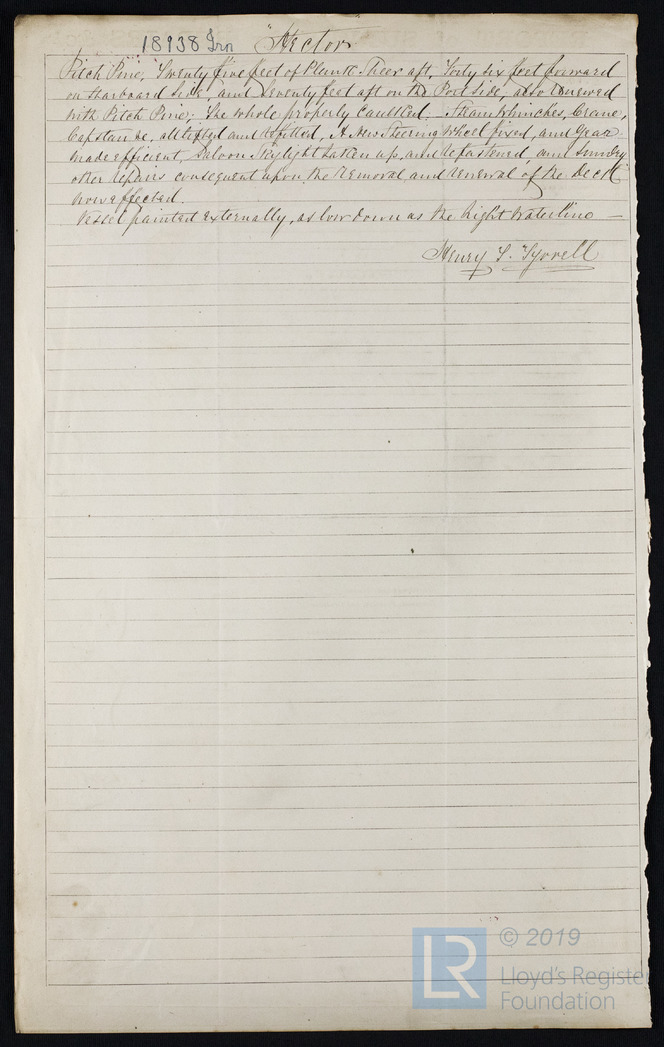 18938 Irn "Hector"
Pitch Pine, Twenty five feet of Plank Sheer aft, Forty six feet forward
on Starboard side, and Seventy feet aft on the Port side, also renewed
with Pitch Pine; The whole properly Caulked. Steam Whinches, Crane,
Capstan &c, all lifted and refitted, A New Steering Wheel fixed, and Gear
made efficient, Saloon Skylight taken up, and refastened, and Sundry
other repairs consequent upon the removal and renewal of the Deck
now effected.
Vessel painted externally, as low down as the light Waterline —
Henry S. Tyrrell
LR © 2019
Lloyd's Register
Foundation